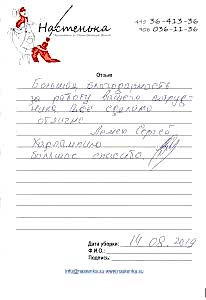 Настенька
449 36-413-36
908 036-11-36
Отзыв
Большая благодарность
за работу вашего сотруд-
ника Все сделано
отлично
Сергей
Харлампию
большое спасибо.
Дата уборки: 14 08. 2019
Ф.И.О.:
Подпись:
info@nastenka.su www.nastenka.su